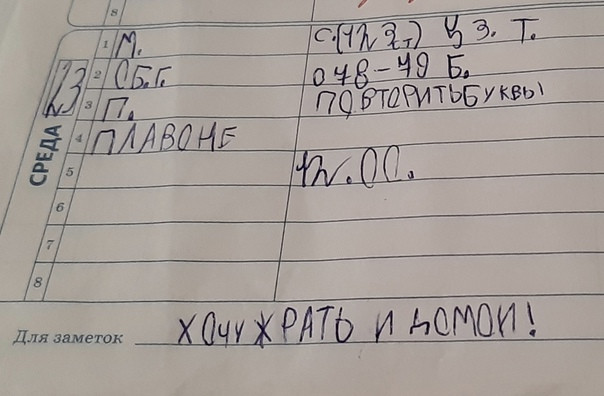 8
СРЕДА
23
1 М. С.(12 3т) Ц З. Т.
2 СБ.Г. 048-49 Б.
3 П. ПОВТОРИТЬБУКВЫ
4 ПЛАВОНЕ
5 12.00.
6
7
8
Для заметок ХОЧУ ЖРАТЬ И ДОМОЙ!